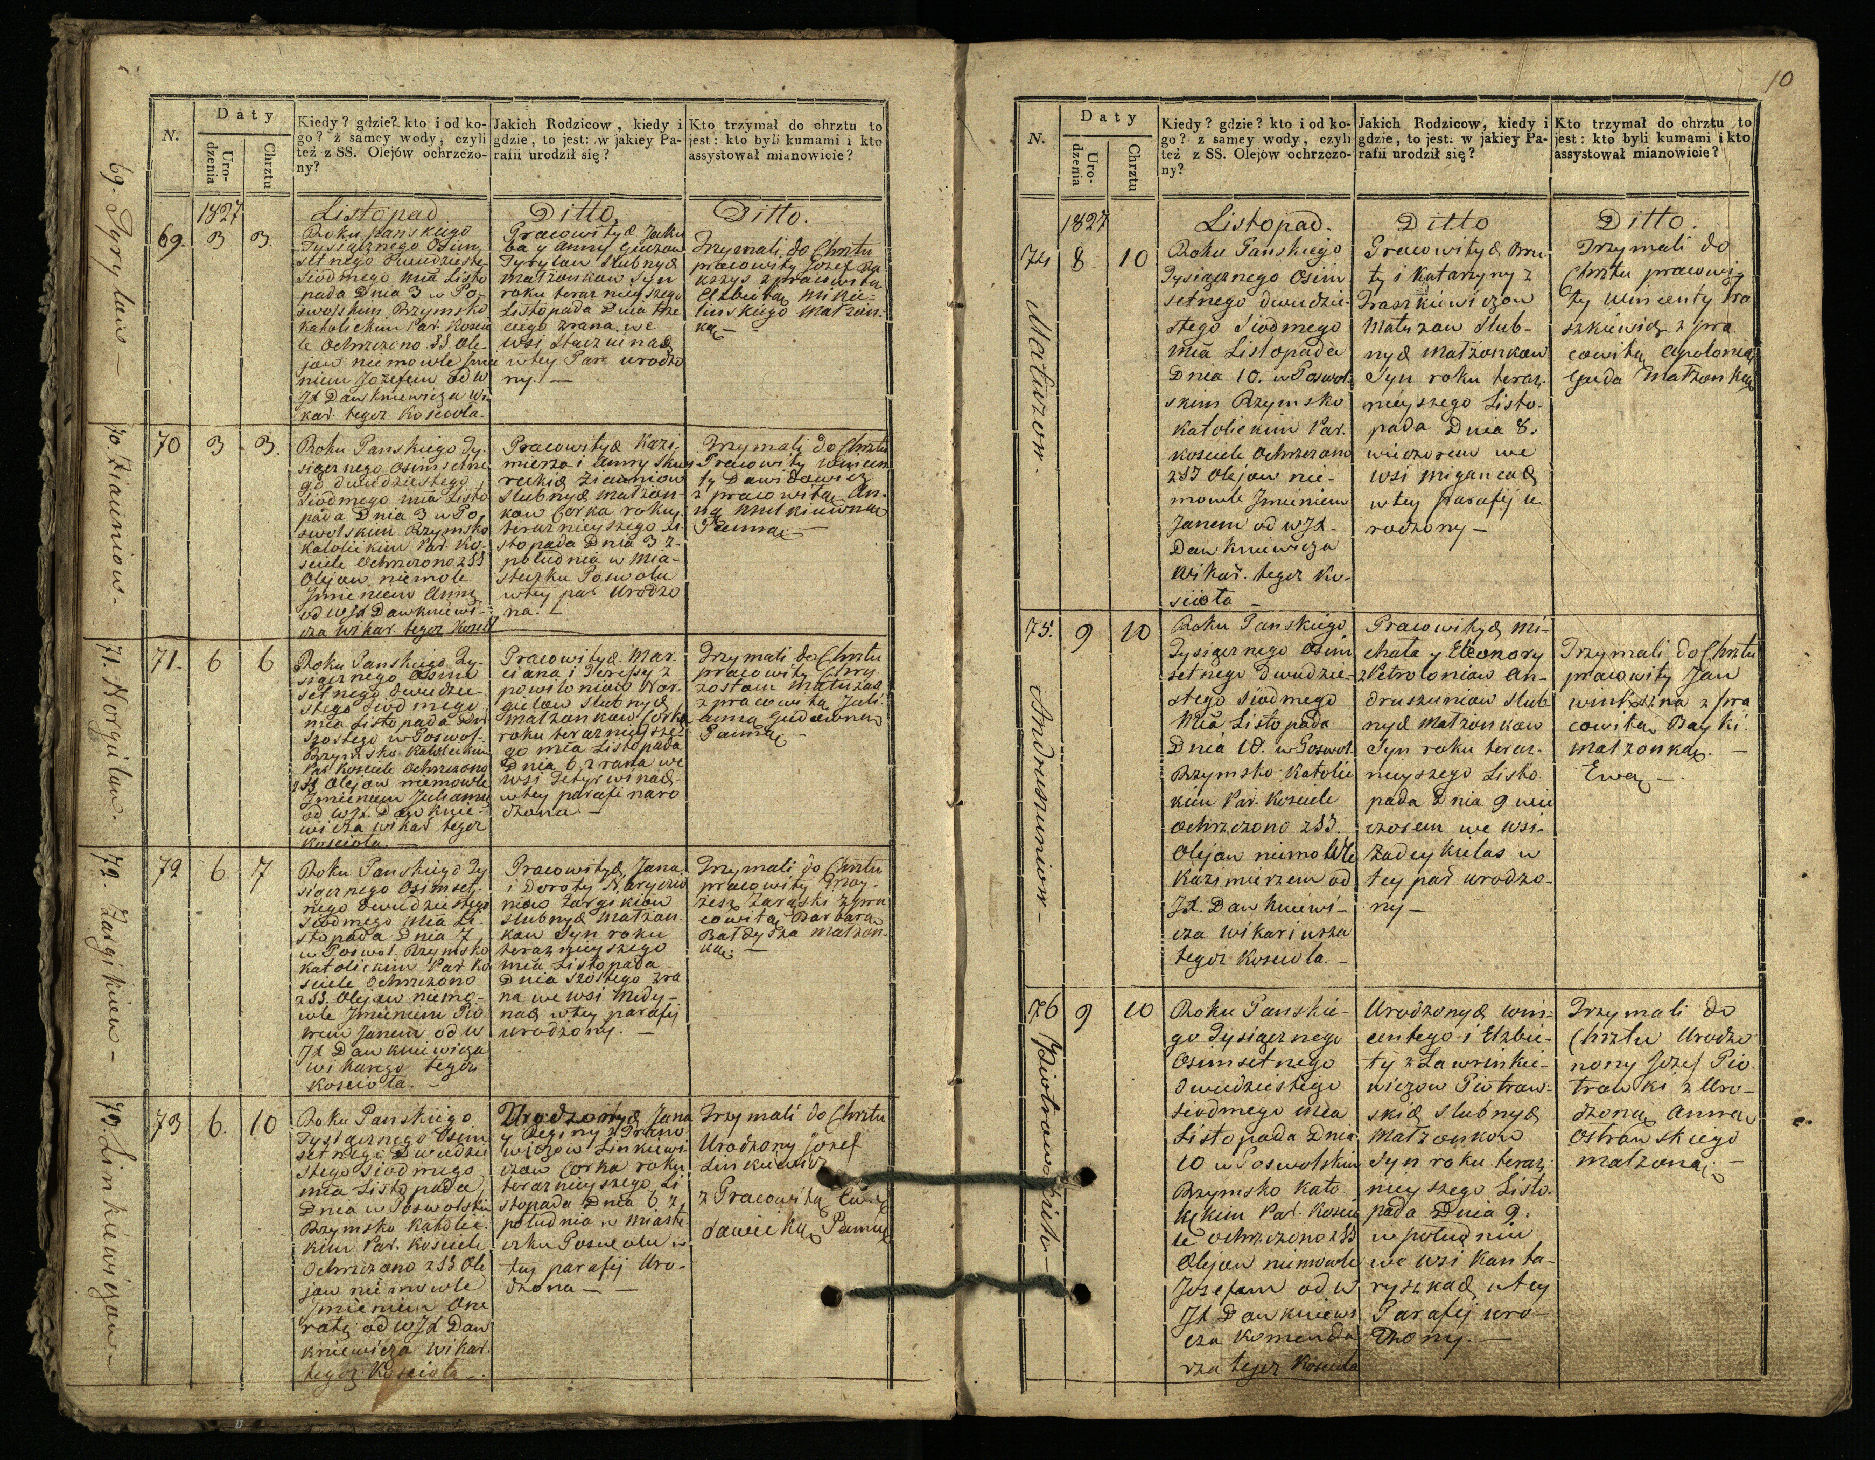 69. Tyrylew —
70. Ziauniow —
71. Norgilow.
72. Zargikiew —
73. Linkiewiczow —
N.
Daty
Uro-
dzenia
Chrztu
Kiedy? gdzie? kto i od ko-
go? z samey wody, czyli
też z SS. Olejów ochrzczo-
ny?
Jakich Rodzicow, kiedy i
gdzie, to jest: w jakiey Pa-
rafii urodził się?
Kto trzymał do chrztu to
jest: kto byli kumami i kto
assystował mianowicie?
1827
69. 3 3.
Listopad
Roku Panskiego
Tysiącznego Osim
setnego Dwudzieste
siodmego mca Listo
pada Dnia 3 w Po-
swolskim Rzymsko
katolickim Par. Koscie
le Ochrzczono SS Ole-
jow niemowle Jmie
niem Jozefem od W
JX Dawkniewicza Wi
kar. tegoz Kosciola.
Ditto.
Pracowitych Jaku
ba y Anny
Tyrylow Slubnych
małżonkow Syn
roku teraz nieyszego
Listopada Dnia trze
ciego zrana we
wsi
w tey Par. urodzo
ny. —
Ditto.
Trzymali do Chrztu
pracowity Jozef
z pracowitą
Elzbietą
małżon-
ką —
70 3 3.
Roku Panskiego Ty-
siącznego Osimsetne
go dwudziestego
siodmego mca Listo
pada Dnia 3 w Po
swolskim Rzymsko
katolickim Par. Ko-
sciele Ochrzczono z SS
Olejow niemole
Jmieniem Anną
od WJX Dawkniewi-
cza wikar. tegoz Kosciol
Pracowitych Kazi
mierza i Anny
Ziauniow
Slubnych Małżon-
kow Corka roku
teraznieyszego Li
stopada Dnia 3 z
południa w Mia-
steczku Poswolu
w tey par. Urodzo
na. —
Trzymali do Chrztu
Pracowity Wincen
ty Dawidowicz
z pracowitą An-
ną
Panną —
71. 6 6
Roku Panskiego Ty-
siącznego Osim
setnego dwudzie-
stego siodmego
mca Listopada Dn
Szostego w Poswol-
Rzymsko katolickim
Par. Kosciele Ochrzczono
z SS Olejow niemowle
Jmieniem Julianną
od WJX Dawknie-
wicza wikar tegoz
Kosciola. —
Pracowitych Mar-
ciana i Teressy z
powiloniow Nor-
gielow Slubnych
małżonkow Corka
roku teraznieysze
go mca Listopada
Dnia 6 zrana we
wsi
w tey parafi naro
dzona —
Trzymali do Chrztu
pracowity Chry
zostom
z pracowitą Juli-
anną
Panną —
72 6 7
Roku Panskiego Ty
siącznego Osimset-
nego dwudziestego
siodmego mca Li
stopada Dnia 7
w Poswol. Rzymsko
katolickim Par. Ko
sciele Ochrzczono
z SS. Olejow niemo-
wle Jmieniem Pio
trem Janem od W
JX Dawkniewicza
wikarego tegoz
Kosciola. —
Pracowitych Jana
i Doroty
Zargikiow
Slubnych Małżon-
kow Syn roku
teraznieyszego
mca Listopada
Dnia szostego zra
na we wsi Medy-
nach w tey parafij
urodzony. —
Trzymali do Chrztu
pracowity
Zarąski z pra
cowitą Barbarą
małżon-
ką —
73 6. 10
Roku Panskiego
Tysiącznego Osim
setnego Dwudzie
stego siodmego
mca Listopada
Dnia w Poswolskim
Rzymsko Katolic-
kim Par. Kosciele
Ochrzczono z SS Ole
jow niemowle
Jmieniem
od WJX Daw
kniewicza wikar.
tegoz Kosciola —.
Urodzonych Jana
y Reginy
Linkiewi
czow Corka roku
teraznieyszego Li
stopada Dnia 6 z
południa w Miaste
czku Poswolu w
tey parafij Uro-
dzona — —
Trzymali do Chrztu
Urodzony Jozef
Linkiewicz
z Pracowitą
Panną
10
N.
Daty
Uro-
dzenia
Chrztu
Kiedy? gdzie? kto i od ko-
go? z samey wody, czyli
też z SS. Olejów ochrzczo-
ny?
Jakich Rodzicow, kiedy i
gdzie, to jest: w jakiey Pa-
rafii urodził się?
Kto trzymał do chrztu to
jest: kto byli kumami i kto
assystował mianowicie?
1827
74 8 10
Matuzow.
Listopad.
Roku Panskiego
Tysiącznego Osim
setnego dwudzie-
stego Siodmego
mca Listopada
Dnia 10. w Poswol-
skim Rzymsko
Katolickim Par.
Kosciele Ochrzczono
z SS Olejow nie-
mowle Jmieniem
Janem od WJX.
Dawkniewicza
Wikar. tegoz Ko-
sciola —
Ditto
Pracowitych
i Katarzyny z
Traszkiewiczow
Matuzow Slub-
nych Małżonkow
Syn roku teraz-
nieyszego Listo-
pada Dnia 8.
wieczorem we
wsi Migancach
w tey parafij u
rodzony —
Ditto.
Trzymali do
Chrztu pracowi-
ty Wincenty Tra
szkiewicz z pra
cowitą Apolonią
Małżonką
75. 9 10
Andruszuniow —
Roku Panskiego
Tysiącznego Osim
setnego Dwudzie-
stego siodmego
Mca Listopada
Dnia 10. w Poswol.
Rzymsko Katolic
kim Par. Kosciele
Ochrzczono z SS.
Olejow niemowle
Kazimierzem od
JX. Dawkniewi-
cza wikariusza
tegoz Kosciola. —
Pracowitych Mi-
chała y Eleonory
z Petroloniow An-
druszuniow Slub
nych Małżonkow
Syn roku teraz-
nieyszego Listo
pada Dnia 9 wie
czorem we wsi
w
tey par urodzo-
ny —
Trzymali do Chrztu
pracowity Jan
z pra
cowitą
małżonką. —
Ewą —.
76 9 10
Piotrowskich —
Roku Panskie-
go Tysiącznego
Osimsetnego
Dwudziestego
siodmego mca
Listopada Dnia
10 w Poswolskim
Rzymsko Kato
lickim Par. Koscie
le ochrzczono z SS
Olejow niemowle
Jozefem od W
JX Dawkniewi
cza Komenda
rza tegoz Kosciola
Urodzonych Win-
centego i Elzbie-
ty z Lawrinkie-
wiczow Piotrow-
skich Slubnych
Małżonkow
Syn roku teraz-
nieyszego Listo-
pada Dnia 9.
w południu
we wsi Kanta-
ryszkach w tey
Parafij uro-
dzony. —
Trzymali do
Chrztu Urodzo
nony Jozef Pio
trowski z Uro-
dzoną Anną
Ostrowskiego
małżoną. —